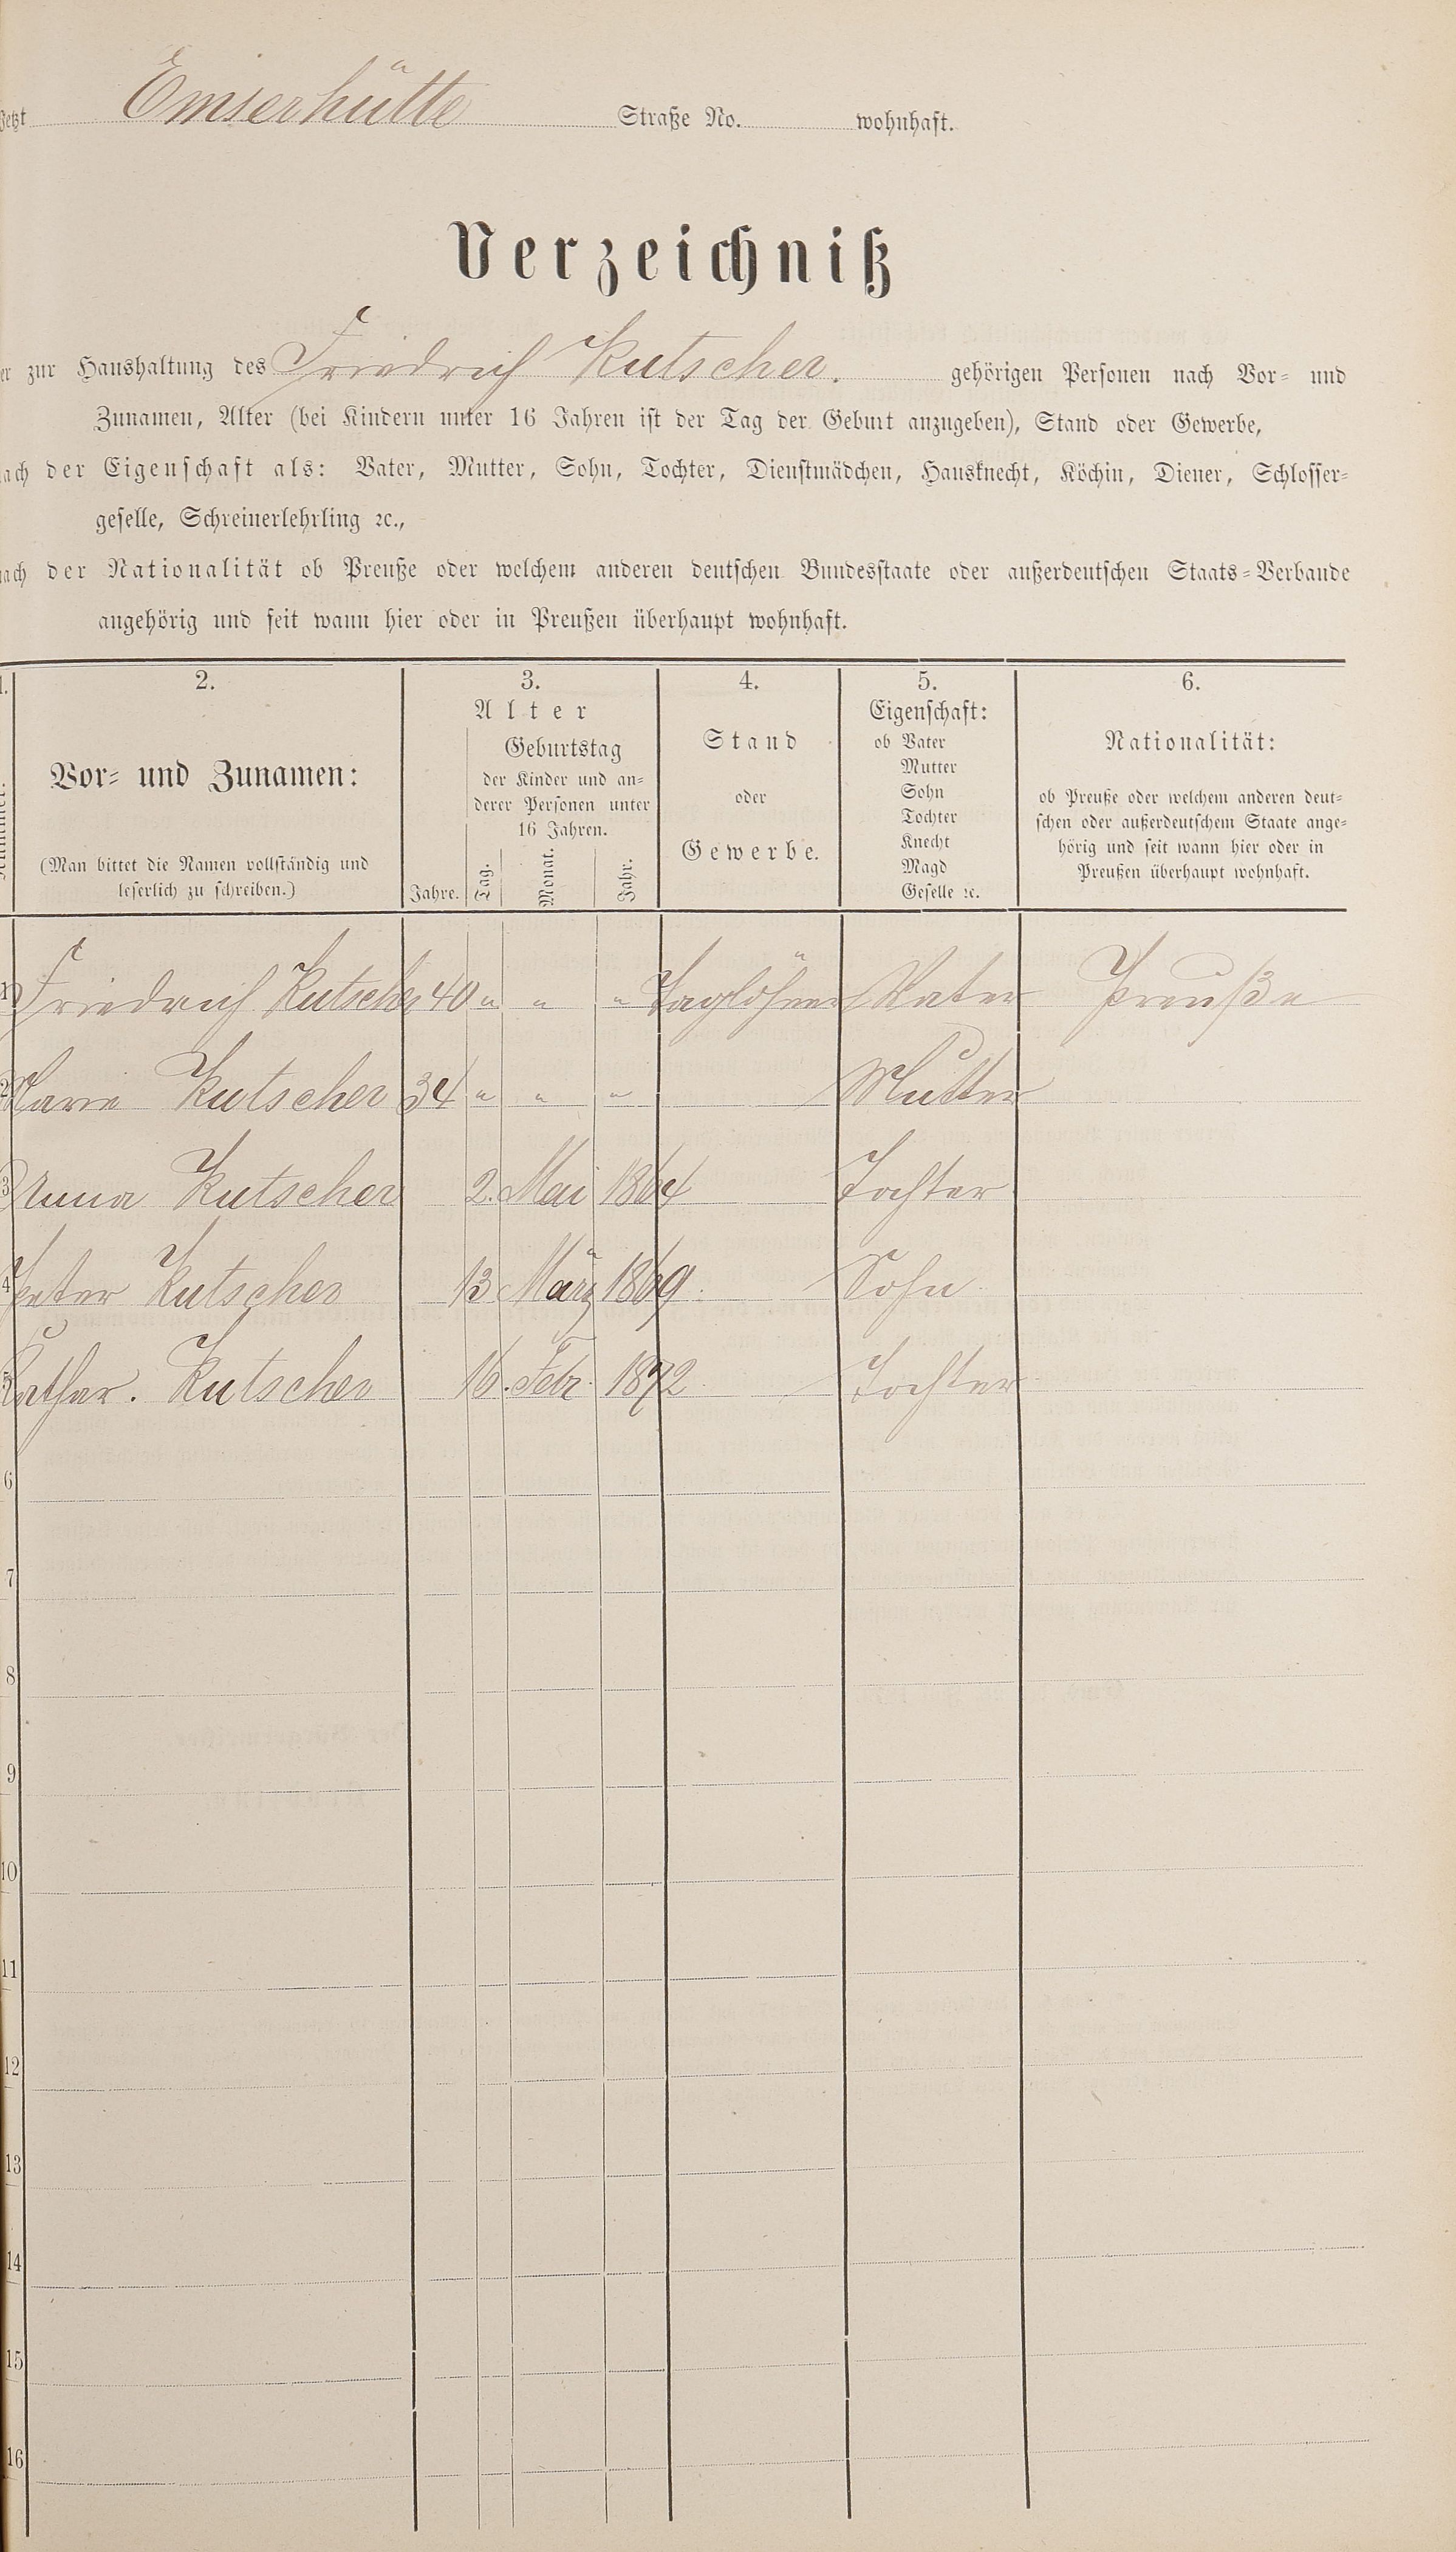 Jetzt Emserhütte Straße No. wohnhaft.
Verzeichniß
er zur Haushaltung des Friedrich Kutscher. gehörigen Personen nach Vor- und
Zunamen, Alter (bei Kindern unter 16 Jahren ist der Tag der Geburt anzugeben), Stand oder Gewerbe,
nach der Eigenschaft als: Vater, Mutter, Sohn, Tochter, Dienstmädchen, Hausknecht, Köchin, Diener, Schlosser-
geselle, Schreinerlehrling ꝛc.,
nach der Nationalität ob Preuße oder welchem anderen deutschen Bundesstaate oder außerdeutschen Staats-Verbande
angehörig und seit wann hier oder in Preußen überhaupt wohnhaft.
1.
2.
Vor- und Zunamen:
(Man bittet die Namen vollständig und
leserlich zu schreiben.)
3.
Alter
Jahre.
Geburtstag
der Kinder und an-
derer Personen unter
16 Jahren.
Tag.
Monat.
Jahr.
4.
Stand
oder
Gewerbe.
5.
Eigenschaft:
ob Vater
Mutter
Sohn
Tochter
Knecht
Magd
Geselle ꝛc.
6.
Nationalität:
ob Preuße oder welchem anderen deut-
schen oder außerdeutschem Staate ange-
hörig und seit wann hier oder in
Preußen überhaupt wohnhaft.
1 Friedrich Kutscher 40 " " " Taglöhner Vater Preuße
2 Marie Kutscher 34 " " " Mutter
3 Anna Kutscher 2. Mai 1864 Tochter
4 Peter Kutscher 13 März 1869. Sohn
5 Kathar. Kutscher 16. Febr. 1872 Tochter
6
7
8
9
10
11
12
13
14
15
16